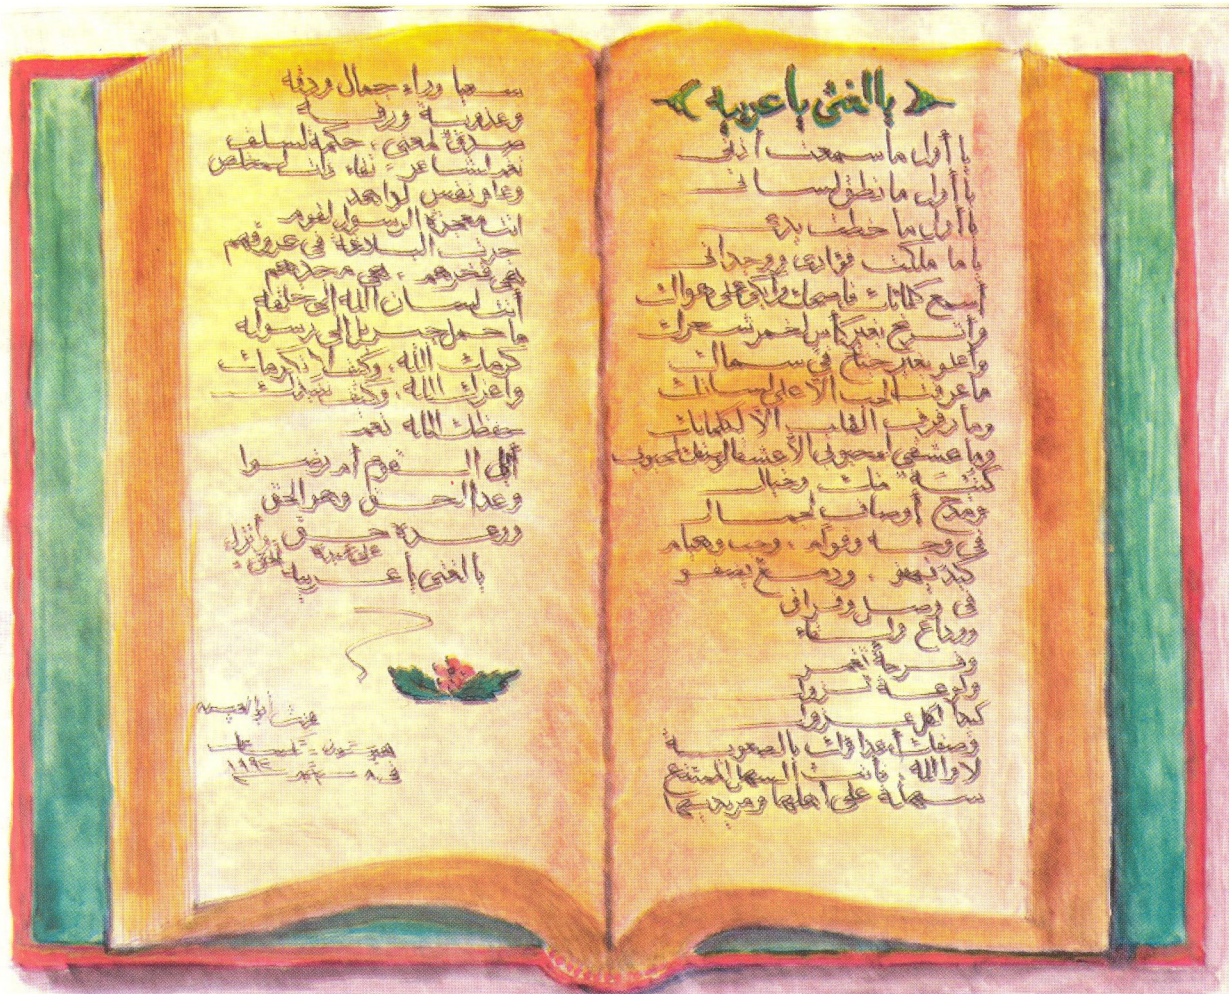 يا لغتي يا عربيه
يا أول ما سمعت أذني
يا أول ما نطق لساني
يا أول ما خطت يدي
يا ما ملكت فؤادي ووجداني
أسمع كلماتك
وأترنح بغير كأس لخمر سحرك
وأعدو بغير جناح في سماك
ما عرفت الحب الا على لسانك
وما رفرف القلب الا لكلماتك
وما عشقني محبوبي الا
منك وخيال
ومدح أوصاف لجمال
في وجه وقوام، وحب وهيام
كبد يهفو، ودمع يصفو
في وصل وفراق
ووداع ولقاء
وفرحة
ولوعة
كيدا لكل عزول
وصفك أعداؤك بالصعوبة
لا والله، فأنت السهل الممتنع
سهلة على أهلها ومريديها
سعيا وراء جمال ودقه
وعذوبة ورقه
صدق لمعنى، حكمة لسلف
نغم لشاعر، نقاء ذات لمخلص
وعلو نفس لزاهد
أنت معجزة الرسول لقوم
جرت البلاغة في عروقهم
هي فخرهم، هي مجدهم
أنت لسان الله الى خلقه
ما حمل جبريل الى رسوله
كرمك الله، وكيف لا نكرمك
وأعزك الله، وكيف
حفظك الله نعم
أقبل القوم أم رفضوا
وعد الحق وهو الحق
ووعده حق
يا لغتي يا عربيه
عزت أبو
في ٨ سبتمبر ١٩٩٢